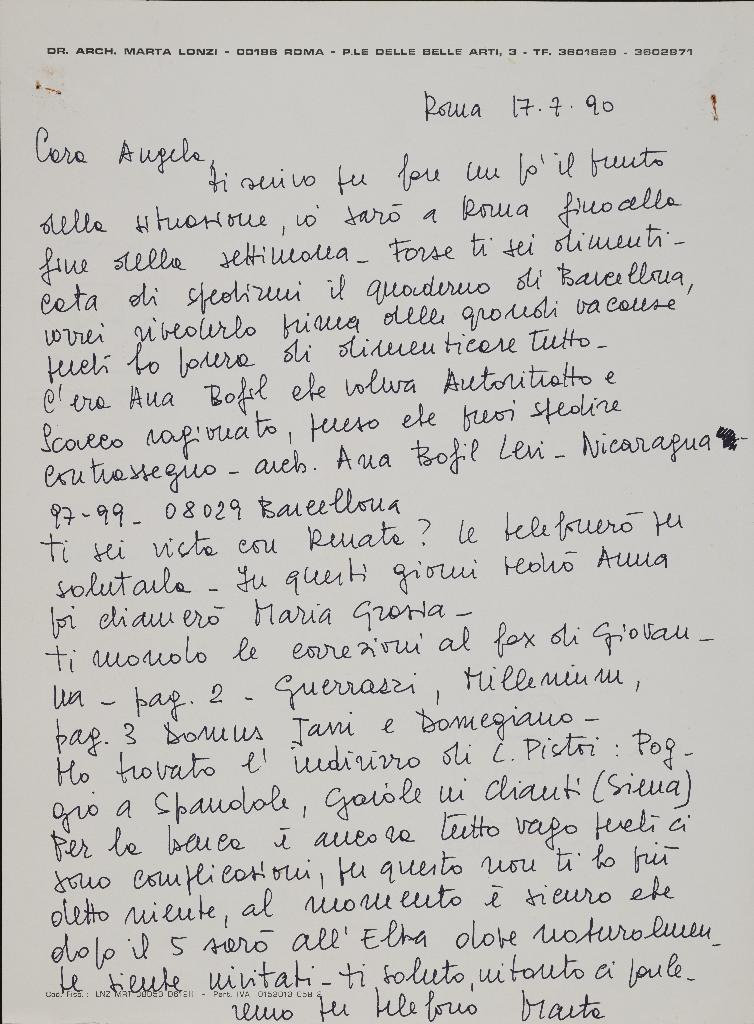 DR. ARCH. MARTA LONZI - 00196 ROMA - P.LE DELLE BELLE ARTI, 3 - TF. 3601829 - 3602971
Roma 17.7.90
Cara Angela,
ti scrivo per fare un po' il punto
della situazione, io sarò a Roma fino alla
fine della settimana - Forse ti sei dimenti-
cata di spedirmi il quaderno di Barcellona,
vorrei rivederlo prima delle grandi vacanze,
perchè ho paura di dimenticare tutto -
C'era Ana Bofil che voleva Autoritratto e
Scacco ragionato, penso che puoi spedire
contrassegno - arch. Ana Bofil Levi - Nicaragua
97-99 - 08029 Barcellona
ti sei vista con Renata? le telefonerò per
salutarla - In questi giorni vedrò Anna
poi chiamerò Maria Grazia -
ti mando le correzioni al fax di Giovan-
na - pag. 2 - Guerrazzi, Millenium,
pag. 3 Domus Jani e Domegiano -
Ho trovato l'indirizzo di C. Pistoi: Pog-
gio a Spandole, Gaiole in Chianti (Siena)
Per la banca è ancora tutto vago perchè ci
sono complicazioni, per questo non ti ho più
detto niente, al momento è sicuro che
dopo il 5 sarò all'Elba dove naturalmen-
te siente invitati - ti saluto, intanto ci parle-
remo per telefono Marta